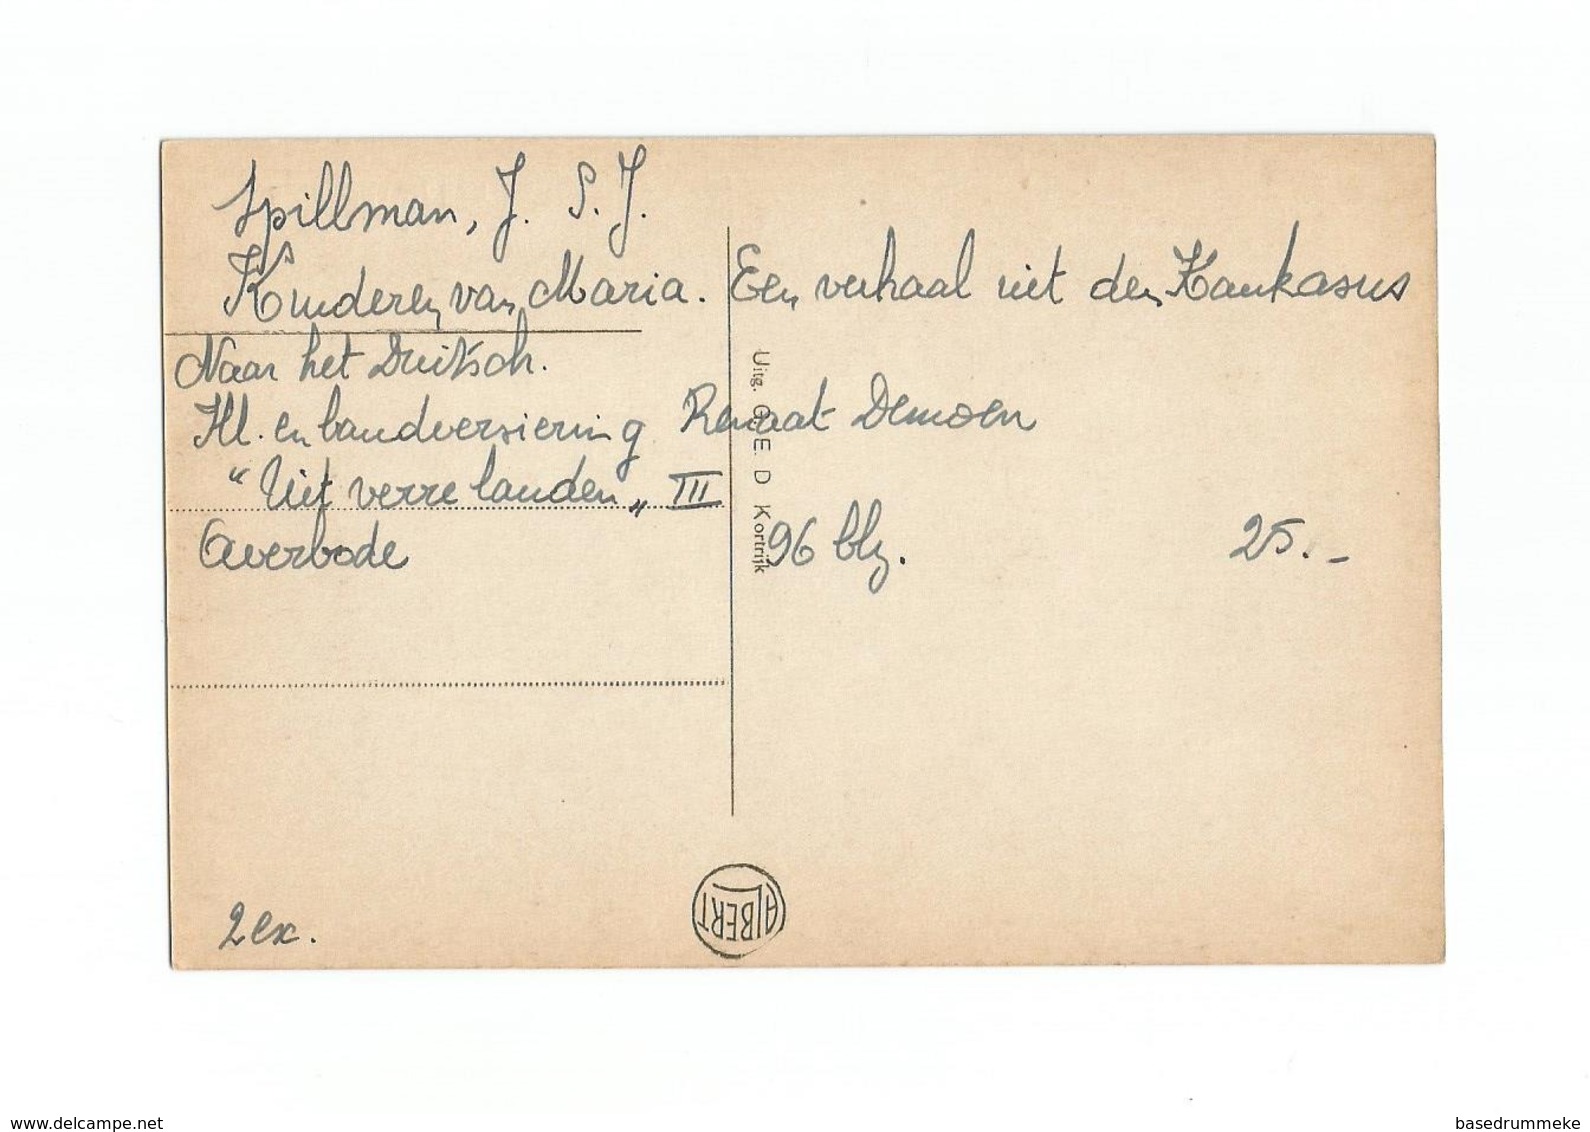 Spillman, J. S.J.
Kinderen van Maria. Een verhaal uit den Kaukasus
Naar het Duitsch.
Ill. en bandversiering Renaat Demoen
"Uit verre landen„ III
Averbode 96 blz. 25.-
2 ex.
Uitg. G. E. D Kortrijk
ALBERT
www.delcampe.net
basedrummeke